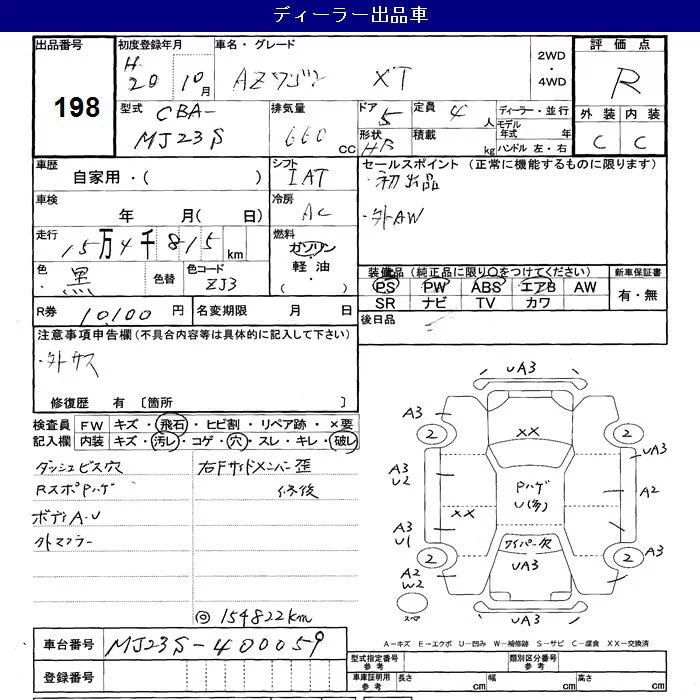 ディーラー出品車
出品番号 初度登録年月 車名・グレード 評価点
198
H 20年 10月 AZワゴン XT 2WD・4WD R
型式 CBA-MJ23S 排気量 660 CC ドア 5 定員 4人 ディーラー・並行
形状 HB 積載 kg モデル年式 年 ハンドル 左・右
外装 内装
C C
車歴 自家用・( ) シフト IAT セールスポイント (正常に機能するものに限ります)
・初出品
車検 年 月(日) 冷房 AC ・外AW
走行 15万4千815km 燃料 ガソリン・軽油・( )
色 黒 色替 色コード ZJ3
装備品(純正品に限り○をつけてください) 新車保証書
PS PW ABS エアB AW 有・無
SR ナビ TV カワ
R券 10,100円 名変期限 月 日 後日品
注意事項申告欄(不具合内容等は具体的に記入して下さい)
・外サス
修復歴 有 〔箇所 〕
検査員記入欄 FW キズ・飛石・ヒビ割・リペア跡・×要
内装 キズ・汚レ・コゲ・穴・スレ・キレ・破レ
ダッシュビス穴 右Fサイドメンバー歪
RスポPハゲ 修後
ボディA.U
外マフラー
◎154822km
UA3
A3
2 XX 2
UA3
A3
U2
Pハゲ
U(多)
A2
A3
U1
XX
ワイパー欠
2 UA3 2 A3
A2
W2
スペア
UA3
A-キズ E-エクボ U-凹み W-補修跡 S-サビ C-腐食 XX-交換済
車台番号 MJ23S-400059
登録番号
型式指定番号 参考 類別区分番号 参考
車庫証明用 参考 長さ cm 幅 cm 高さ cm